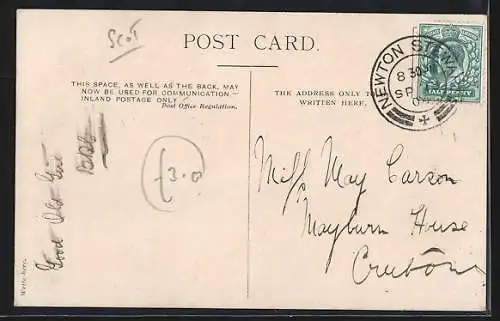 Scot
POST CARD.
THIS SPACE, AS WELL AS THE BACK, MAY
NOW BE USED FOR COMMUNICATION—
INLAND POSTAGE ONLY
Post Office Regulation.
THE ADDRESS ONLY TO
WRITTEN HERE.
NEWTON STEW
8 30
SP
HALF PENNY
Write here.
Good Old
£3.0
Miss May Carson
Mayburn House